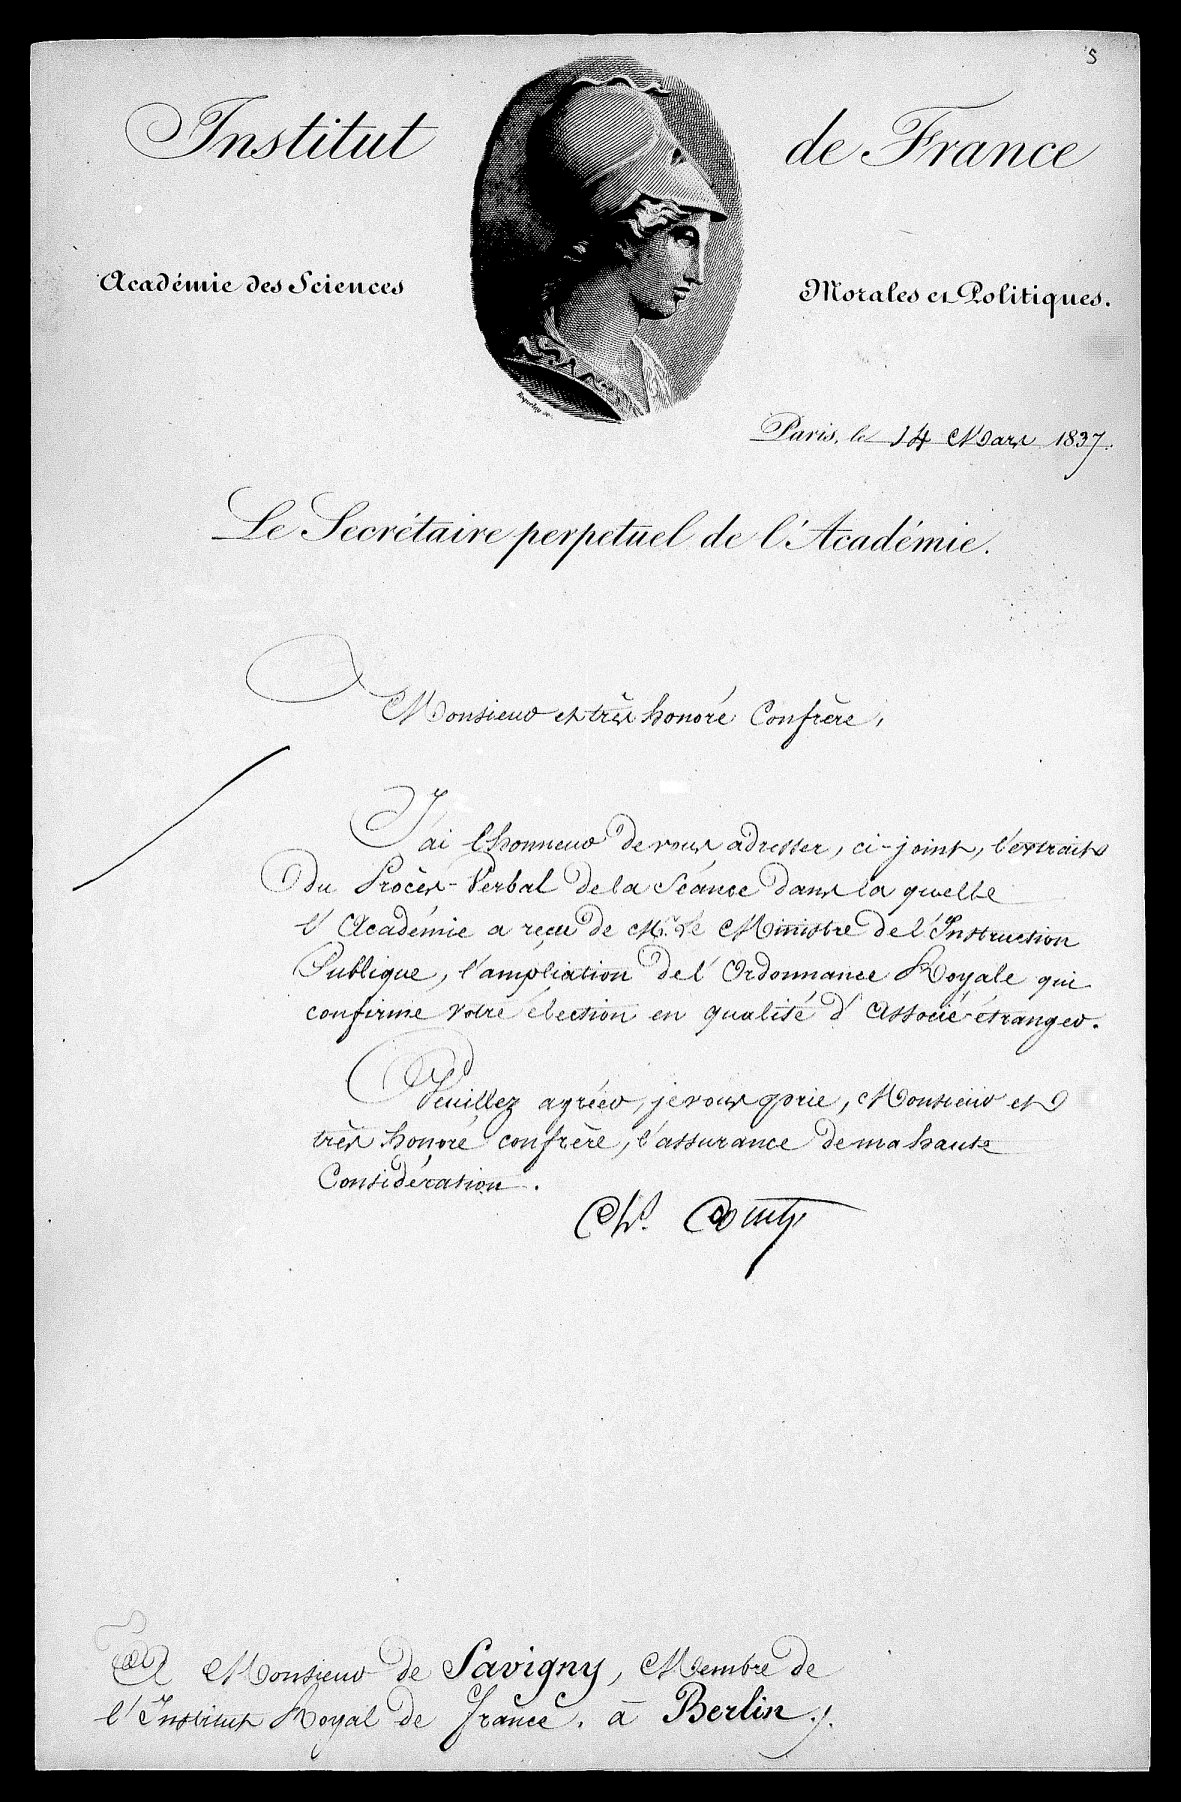 5
Institut de France
Académie des Sciences Morales et Politiques.
Paris, le 14 Mars 1837.
Le Secrétaire perpetuel de l'Académie.
Monsieur et très honoré Confrère,
J'ai l'honneur de vous adresser, ci-joint, l'extrait
du Procès-Verbal de la Séance dans la quelle
l'Académie a reçu de Mr. le Ministre de l'Instruction
Publique, l'ampliation de l'Ordonnance Royale qui
confirme votre élection en qualité d'Associé étranger.
Veuillez agréer, je vous prie, Monsieur et
très honoré confrère, l'assurance de ma haute
Considération.
Ch.s Comte
A Monsieur de Savigny, Membre de
l'Institut Royal de france. à Berlin.